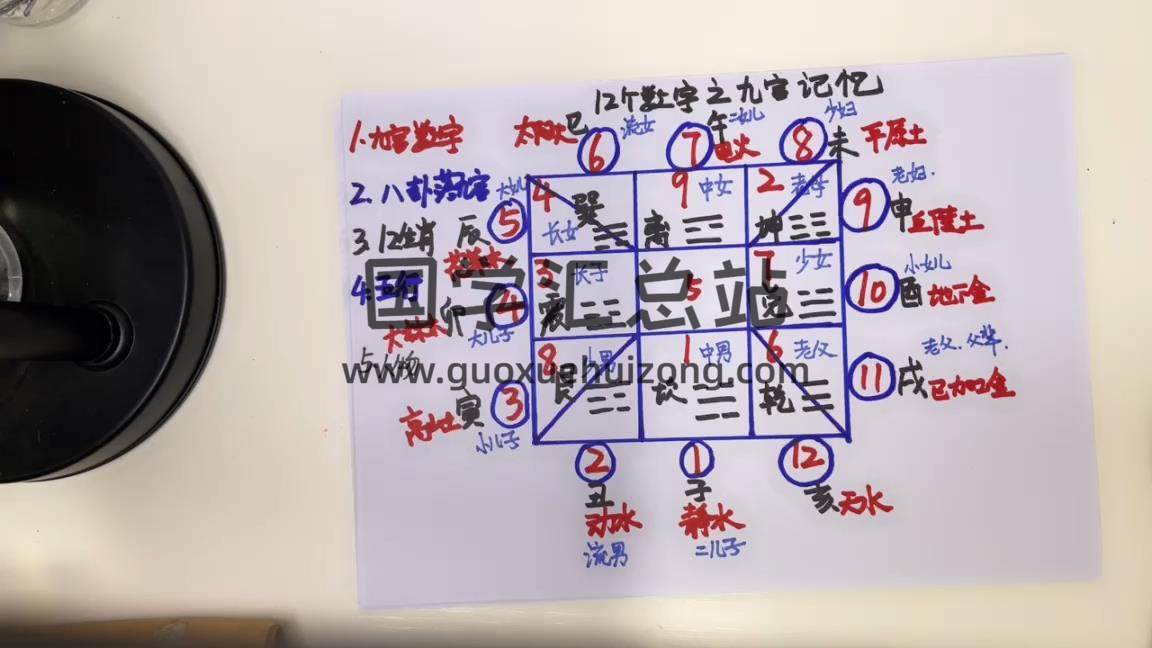 12个数字之九宫记忆
1.九宫数字
2.八卦落九宫
3 12生肖
4.五行
5 人物
太阳火 巳 6 流女
午 7 二女儿 电火
8 少妇 未 平原土
大女儿 5 辰
4 卯 大林木 大儿子
高山土 寅 3 小儿子
9 申 老妇. 丘陵土
10 酉 小女儿 地下金
11 戌 老父.父辈.
4 巽 长女
9 中女 离
2 老母 坤
3 长子 震
5
7 少女 兑
8 少男 艮
1 中男 坎
6 老父 乾
2 丑 动水 流男
1 子 静水 二儿子
12 亥 天水
国学汇总站
www.guoxuehuizong.com